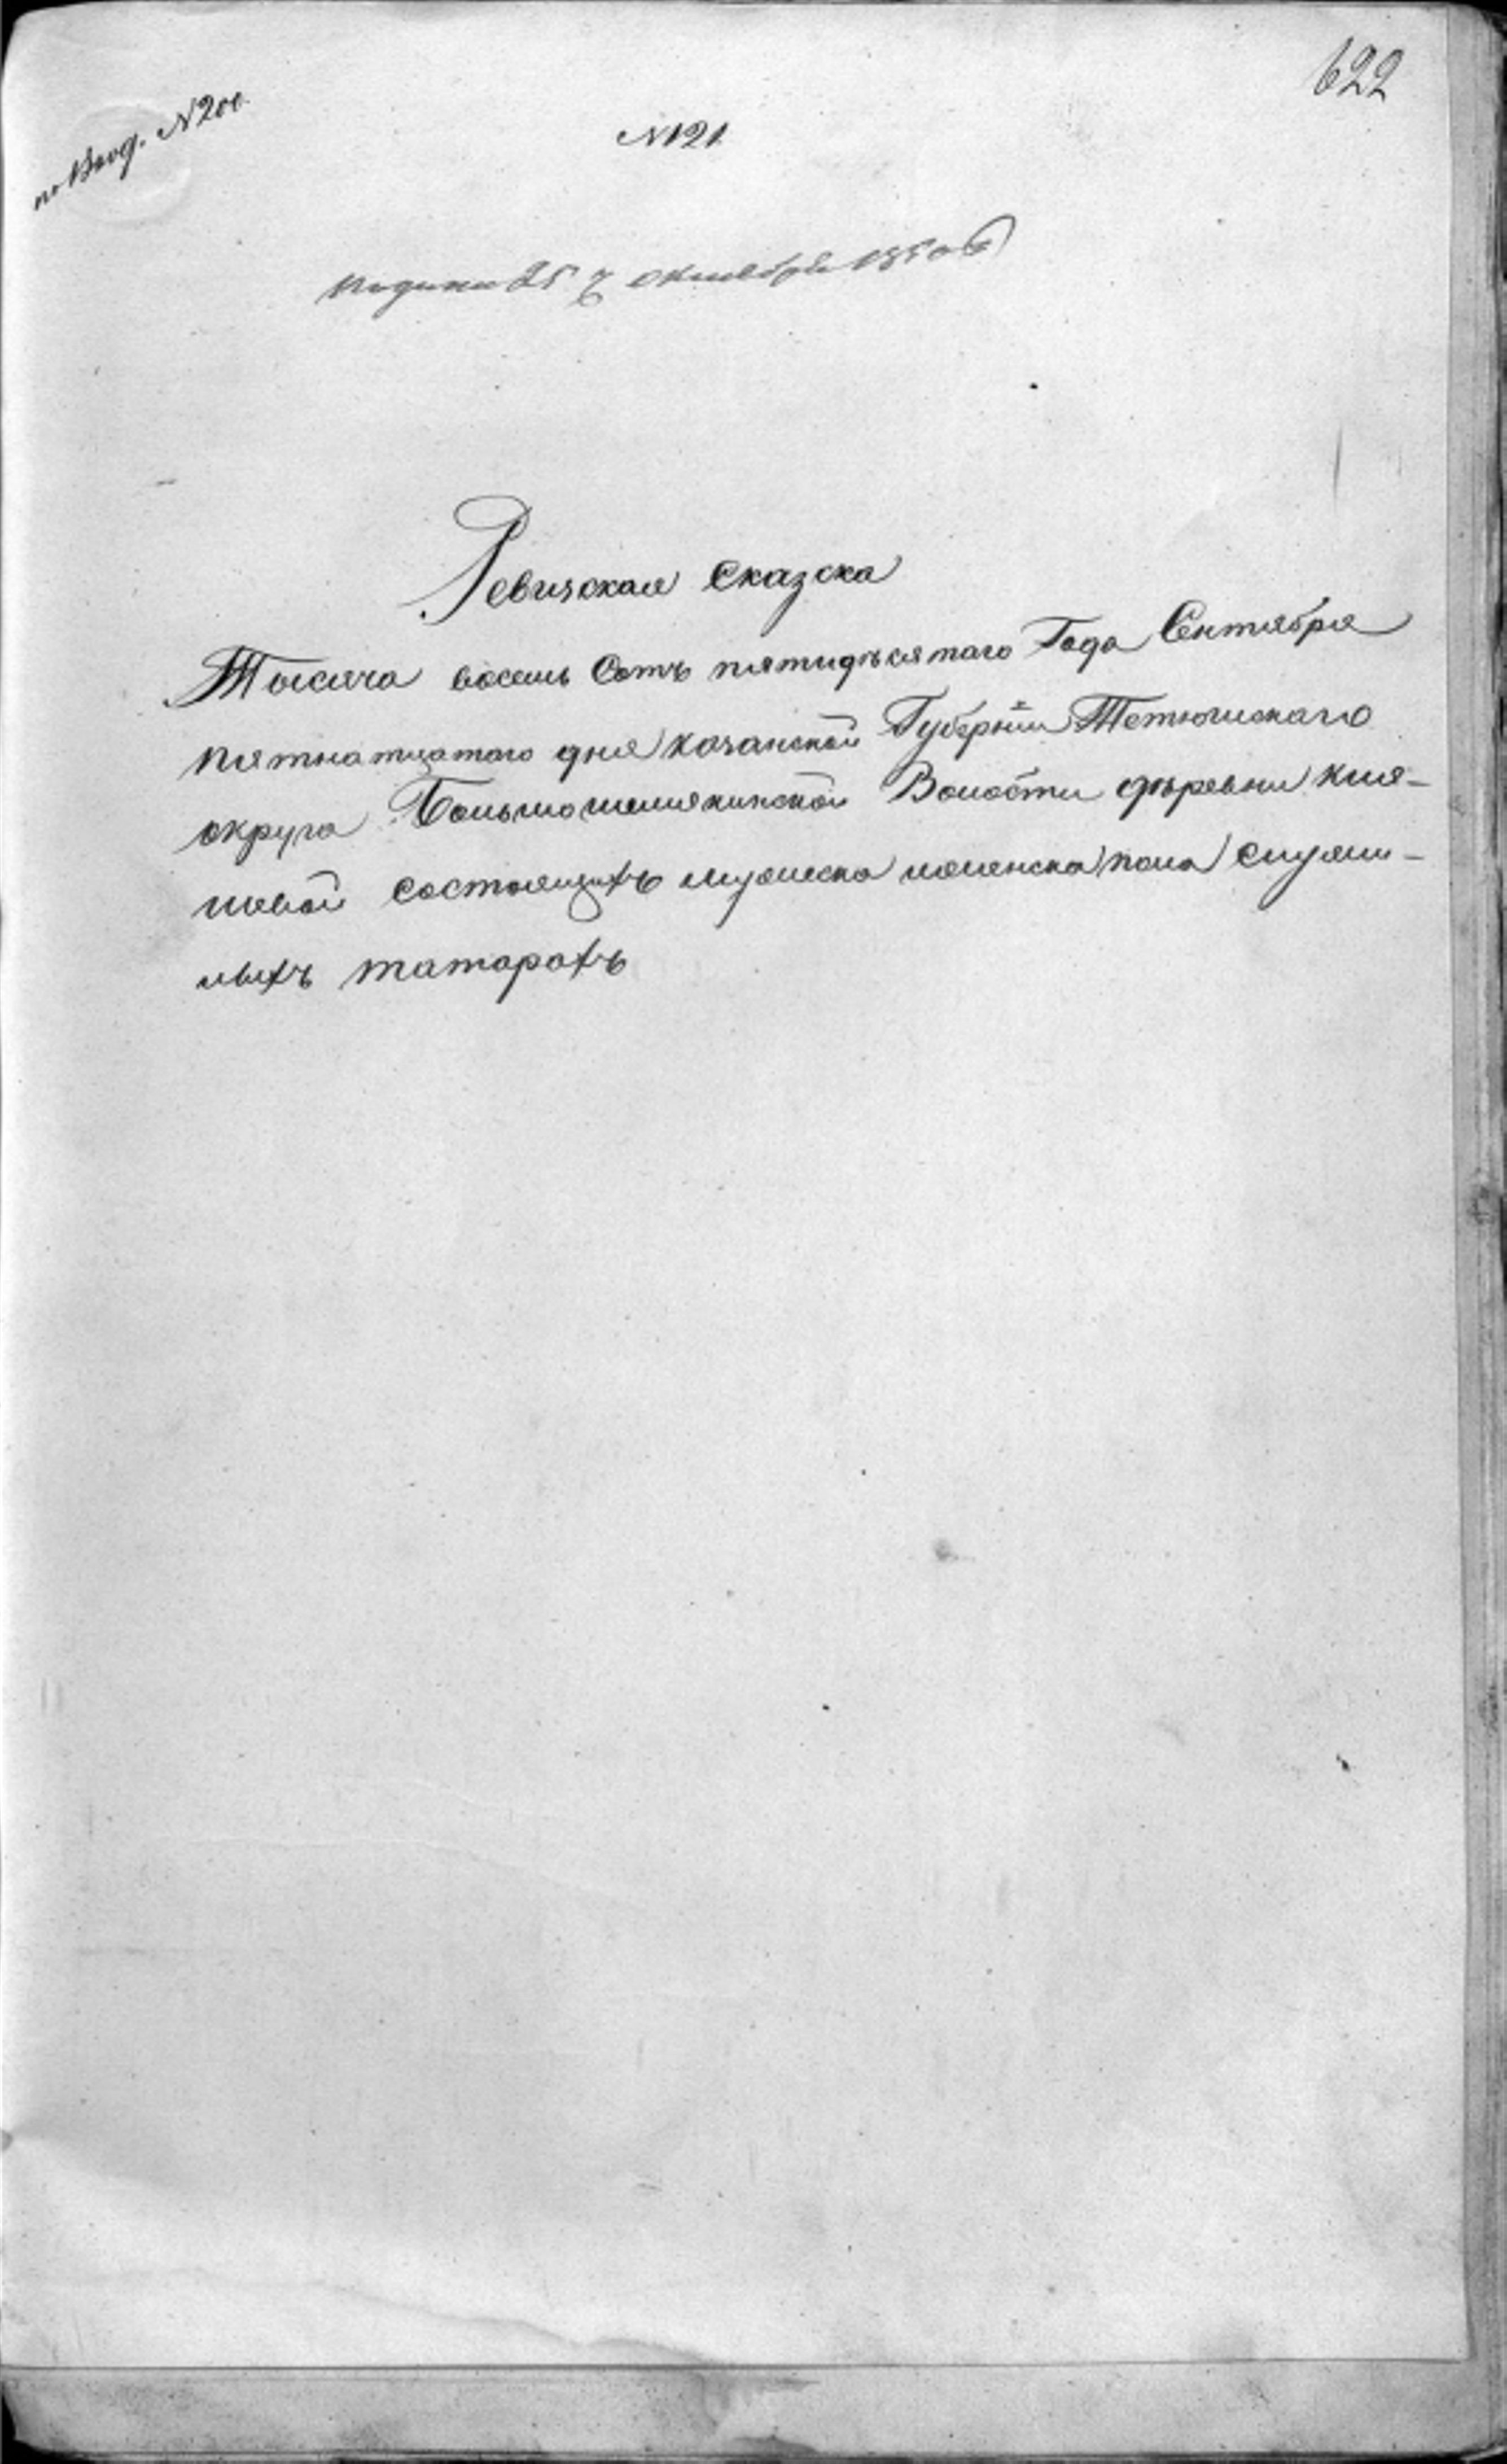 622
по Вход. N 200.
N 121.
Подана 25 г Октября 1850 г
Ревизская сказска
Тысяча восемь Сотъ пятидѣсятаго Года Сентября
пятнатцатого дня казанской Губернiи Тетюшскаго
округа Большошемякинской Волости дѣревни кия-
шевой состоящихъ мужеска иженска пола служи-
лыхъ татарахъ